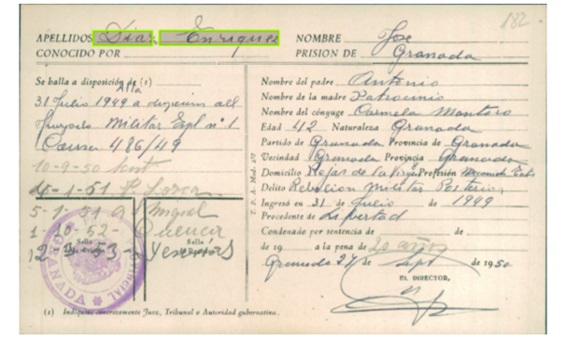 182
APELLIDOS Diaz Enriquez NOMBRE Jose
CONOCIDO POR PRISION DE Granada
Se halla a disposición de (1)
Alla
31 Julio 1949 a del
Juzgado Militar Espl nº 1
Causa 486/49
10-9-50
-1-51
5-1-51 Miguel
1-10-52- Cuenca
2-9-53 Yeserias
Sello Sello
PROVINCIAL GRANADA
Nombre del padre Antonio
Nombre de la madre Patrocinio
Nombre del cónyuge Carmela Montoro
Edad 42 Naturaleza Granada
Partido de Granada Provincia de Granada
Vecindad Granada Provincia Granada
Domicilio Profesión
Delito Rebelion Militar
Ingresó en 31 de Julio de 1949
Procedente de Libertad
Condenado por sentencia de de
de 19 a la pena de 20 años
Granada 27 de Sept de 1950
EL DIRECTOR,
(1) Indíquese concretamente Juez, Tribunal o Autoridad gubernativa.